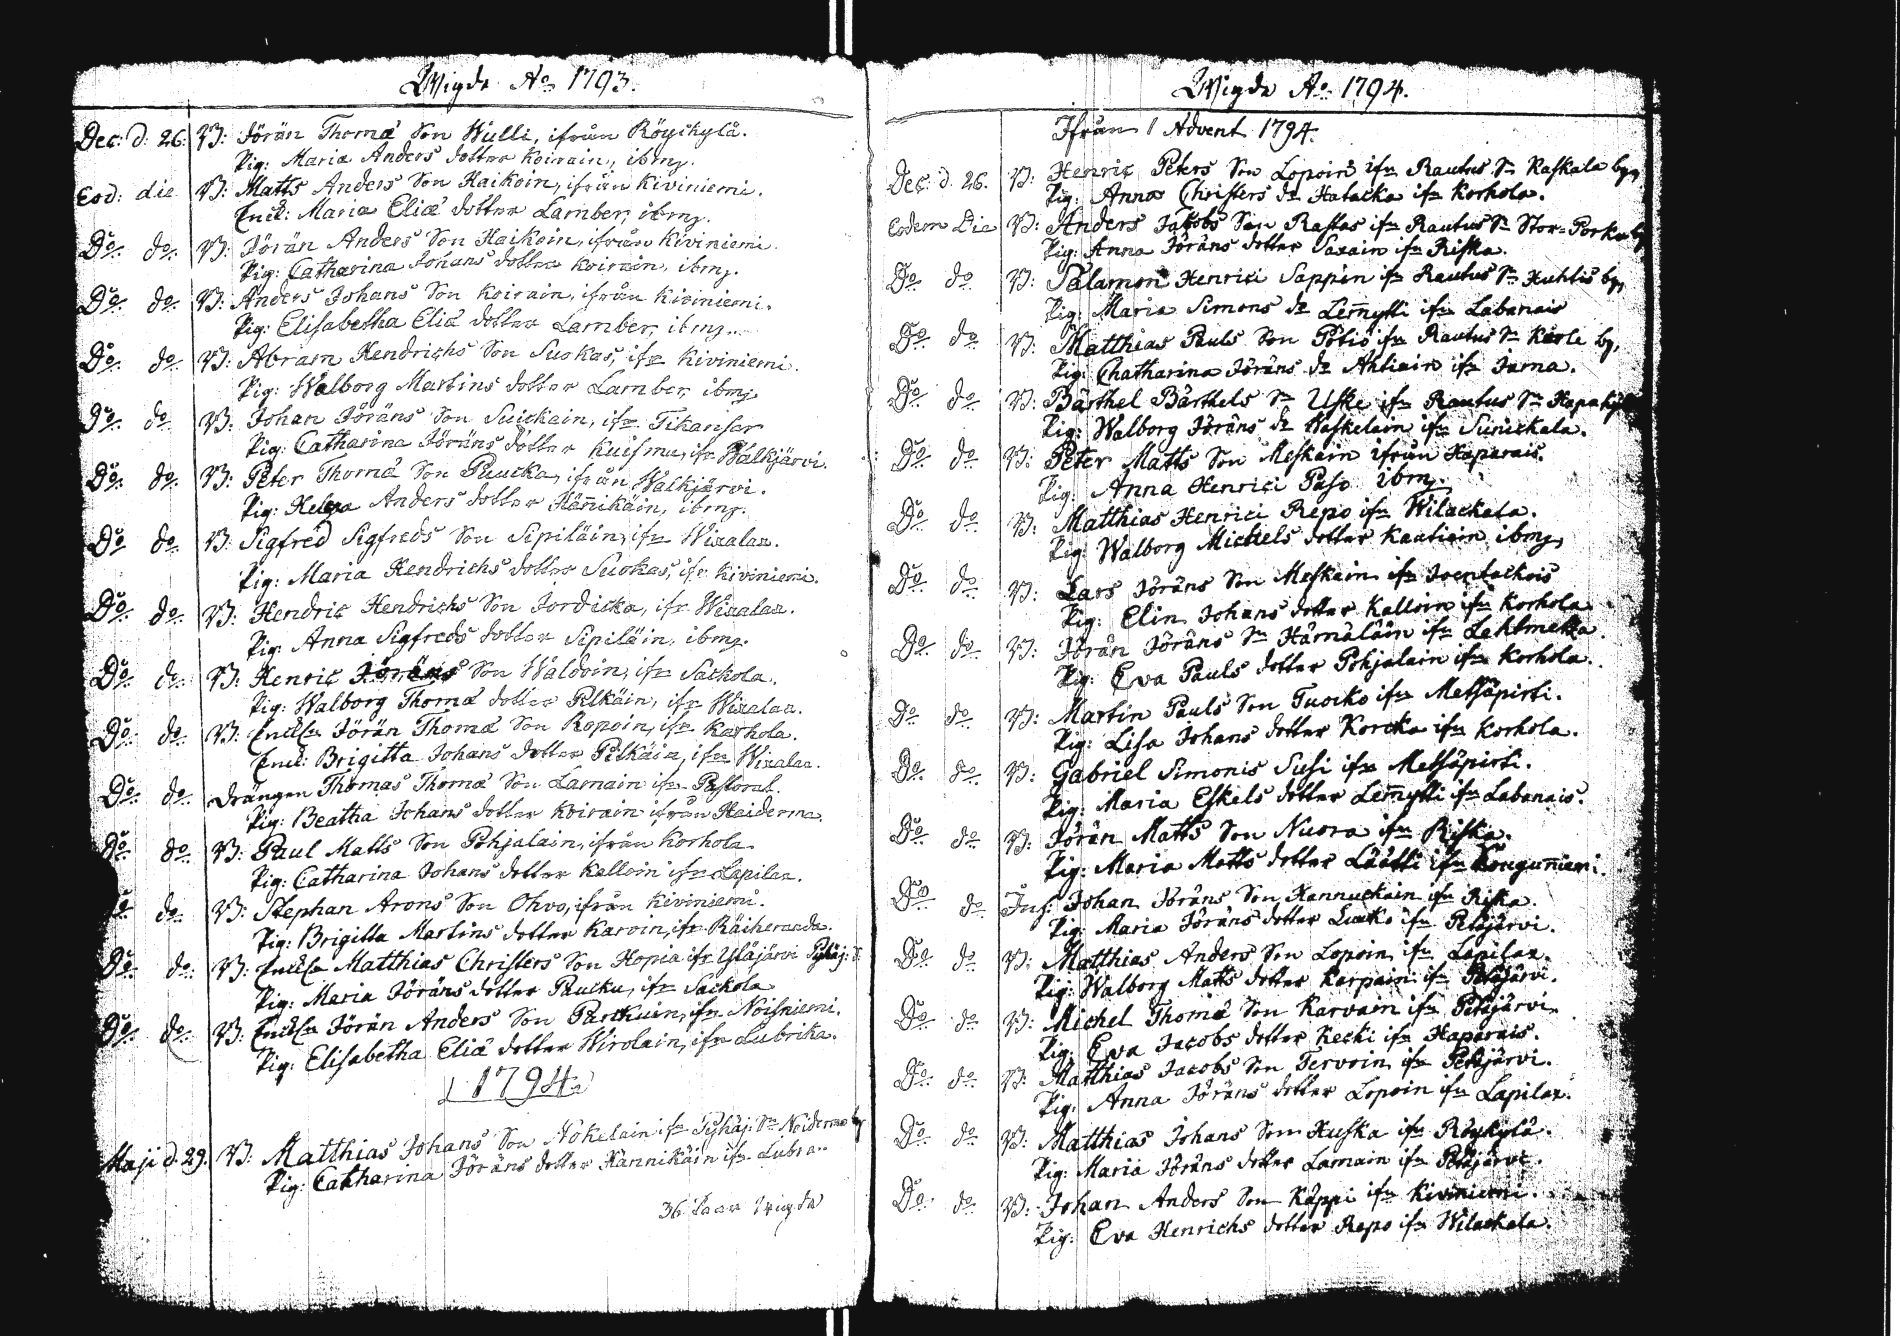 Wigde Aº 1793.
Dec: d. 26. B: Jörän Thomæ Son Wulli, ifrån Röyckylä.
Pig: Maria Anders dotter Koirain, ibm.
Eod: die B: Matts Anders Son Haikoin, ifrån Kiviniemi.
Enck: Maria Eliæ dotter Lamber, ibm.
Do do B: Jörän Anders Son Haikoin, ifrån Kiviniemi.
Pig: Catharina Johans dotter Koirain, ibm.
Do do B: Anders Johans Son Koirain, ifrån Kiviniemi.
Pig: Elisabetha Eliæ dotter Lamber, ibm.
Do do B: Abram Hendrichs Son Suokas, ifr Kiviniemi.
Pig: Walborg Martins dotter Lamber, ibm.
Do do B: Johan Jöräns Son Suickain, ifr Tikansar
Pig: Catharina Jöräns dotter Kuisma, ifr Walkjärvi.
Do do B: Peter Thomæ Son Paucka, ifrån Walkjärvi.
Pig: Helena Anders dotter Hännikäin, ibm.
Do do B: Sigfred Sigfreds Son Sipiläin, ifr Wixalax.
Pig: Maria Hendrichs dotter Suokas, ifr Kiviniemi.
Do do B: Hendric Hendrichs Son Jordicka, ifr Wixalax.
Pig: Anna Sigfreds dotter Sipiläin, ibm.
Do do B: Henric Jöräns Son Waldoin, ifr Sackola.
Pig: Walborg Thomæ dotter Pilkäin, ifr Wixalax.
Do do B: Encken Jörän Thomæ Son Repoin, ifr Karhola.
Enck: Brigitta Johans dotter Pilkäin, ifrn Wixalax.
Do do drängen Thomas Thomæ Son Lamain ifrn Pastorat.
Pig: Beatha Johans dotter Koirain ifrån Haiderma.
Do do B: Paul Matts Son Pohjalain, ifrån Korhola
Pig: Catharina Johans dotter Kalloin ifrn Lapilax.
Do do B: Stephan Arons Son Ohvo, ifrån Kiviniemi.
Pig: Brigitta Martins dotter Karvoin, ifr Räiheranda.
Do do B: Encken Matthias Christers Son Hopia ifr Yläjärvi Pyhäj: S.
Pig: Maria Jöräns dotter Paucku, ifr Sackola
Do do B: Encken Jörän Anders Son Parckuin, ifrn Noisniemi.
Pig: Elisabetha Eliæ dotter Wirolain, ifrn Lubrika.
1794.
Maji d. 29. B: Matthias Johans Son Nokelain ifr Pyhäj: Sn Noiderma by
Pig: Catharina Jöräns dotter Hännikäin ifr Lubra
36 Paar Wigda
Wigde Aº 1794.
Ifrån 1 Advent 1794.
Dec: d. 26. B: Henric Peters Son Lopoin ifrn Rautus Sn Kaskala by,
Pig: Anna Christers dr Hatacka ifr Korhola.
Eodem Die B: Anders Jacobs Son Rastas ifr Rautus Sn Stor-Porku by
Pig: Anna Jöräns dotter Saxain ifr Riska.
Do do B: Salamon Henrici Sappin ifr Rautus Sn Huhtis by,
Pig: Maria Simons dr Lem̄ytti ifr Labanais
Do do B: Matthias Pauls Son Pötiö ifr Rautus Sn Kärle by,
Pig: Chatharina Jöräns dr Ahtiain ifr Jama.
Do do B: Barthel Barthels Sn Uske ifr Rautus Sn
Pig: Walborg Jöräns dr Kaskelain ifr Sunickala.
Do do B: Peter Matts Son Meskain ifrån Haparais.
Pig: Anna Henrici Paso ibm.
Do do B: Matthias Henrici Repo ifn Wilackala.
Pig: Walborg Michels dotter Kaatiain ibm,
Do do B: Lars Jöräns Son Meskain ifn
Pig: Elin Johans dotter Kalloin ifn Korhola
Do do B: Jörän Jöräns Sn Hämäläin ifn Lehtmetza.
Pig: Eva Pauls dotter Pohjalain ifn Korhola.
Do do B: Martin Pauls Son Tuocko ifn Metsäpirti.
Pig: Lisa Johans dotter Korcka ifn Korhola.
Do do B: Gabriel Simonis Susi ifn Metsäpirti.
Pig: Maria Eskels dotter Lem̄ytti ifn Labanais.
Do do B: Jörän Matts Son Nuora ifn Riska.
Pig: Maria Matts dotter Läätti ifn Kougun̄iemi.
Do do Inh: Johan Jöräns Son Hannuckain ifn Riska.
Pig: Maria Jöräns dotter Lucko ifn Petäjärvi.
Do do B: Matthias Anders Son Lopoin ifn Lapilax.
Pig: Walborg Matts dotter Karpain ifn Petäjärvi.
Do do B: Michel Thomæ Son Karvain ifn Petäjärvi.
Pig: Eva Jacobs dotter Kecki ifn Haparais.
Do do B: Matthias Jacobs Son Tervoin ifn Petäjärvi.
Pig: Anna Jöräns dotter Lopoin ifn Lapilax.
Do do B: Matthias Johans Son Huska ifn Röykylä.
Pig: Maria Jöräns dotter Lamain ifn Petäjärvi.
Do do B: Johan Anders Son Käppi ifn Kiviniemi.
Pig: Eva Henrichs dotter Repo ifn Wilackala.